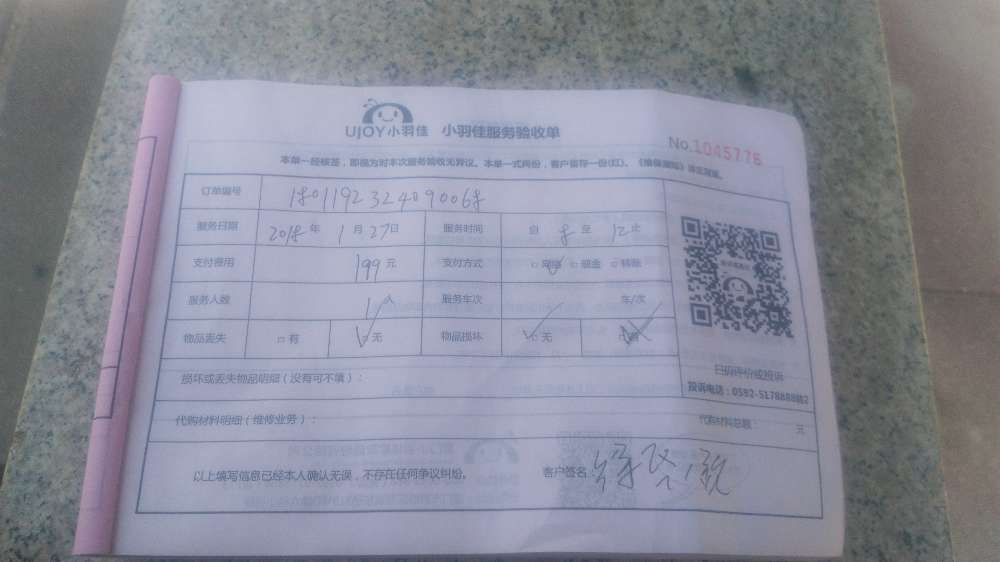 UJOY小羽佳 小羽佳服务验收单
No.1045776
本单一经核签，即视为对本次服务验收无异议。本单一式两份，客户留存一份(红)。
订单编号 1801192324090068
服务日期 2018年1月27日 服务时间 自8至12止
支付费用 199元 支付方式 □网络 □现金 □转账
服务人数 1人 服务车次 车/次
物品丢失 □有 □无 物品损坏 □无
损坏或丢失物品明细（没有可不填）：
扫码评价或投诉
投诉电话：0592-5178888转2
代购材料明细（维修业务）： 代购材料总额： 元
以上填写信息已经本人确认无误，不存在任何争议纠纷。 客户签名